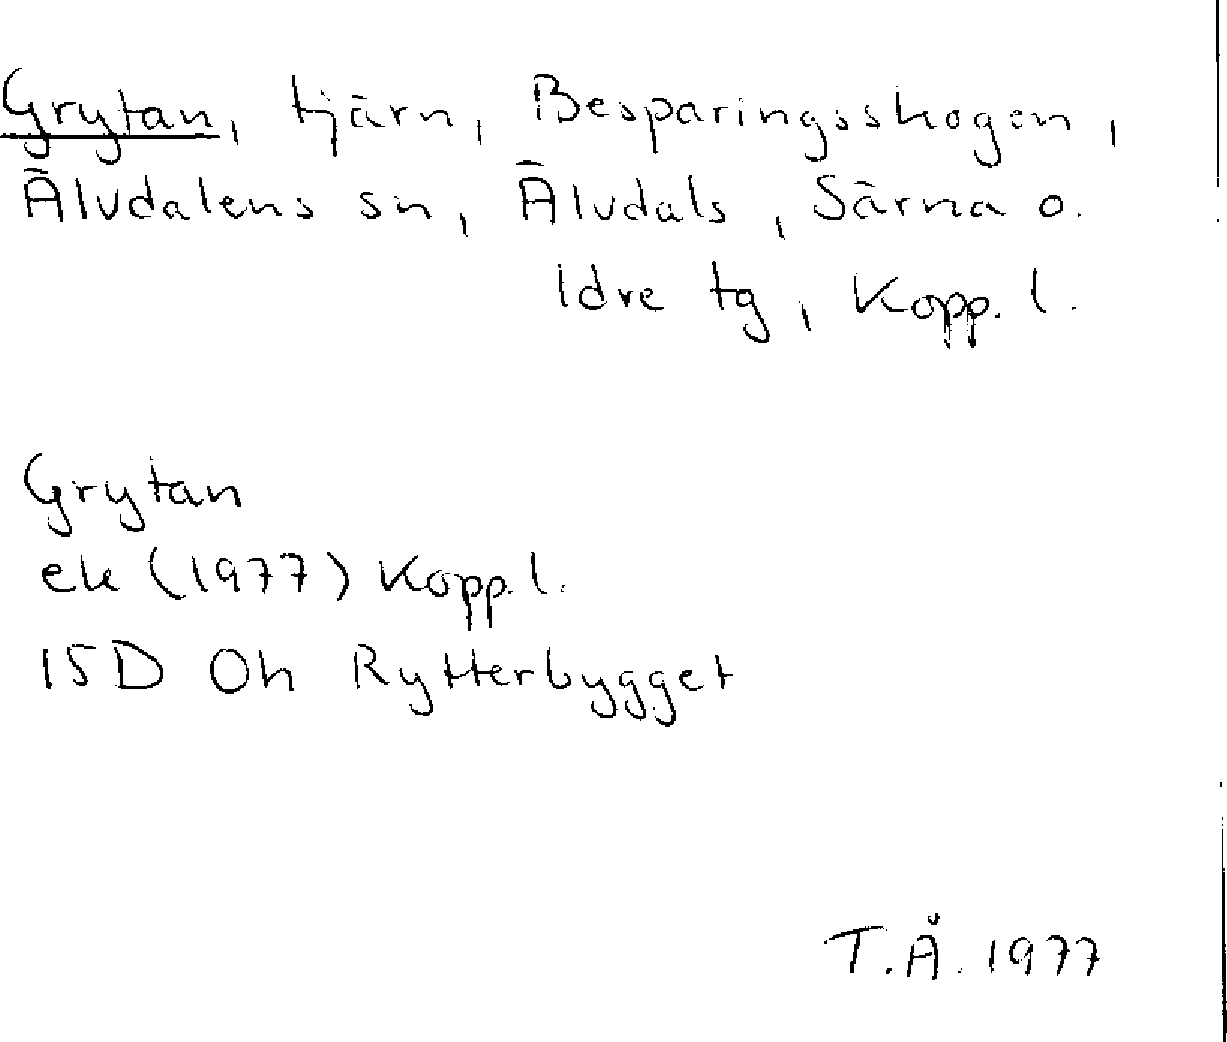 Grytan, tjärn, Besparingsskogen,
Älvdalens sn, Älvdals, Särna o.
Idre tg, Kopp. l.
Grytan
ek (1977) Kopp. l.
15D Oh Rytterbygget
T.Å. 1977